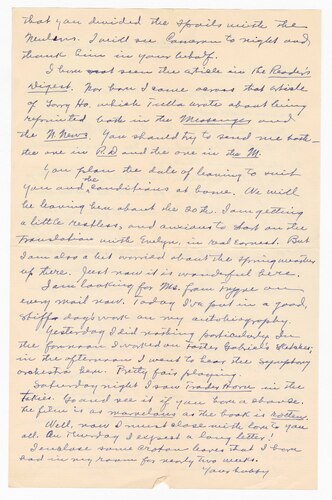 that you divided the spoils with the
I will see Cameron to night and
thank him in your behalf.
I have not seen the article in the Reader's
Digest. Nor have I came across that article
of Long Ho. which Stella wrote about being
reprinted both in the Messenger and
the N. News. You should try to send me both
the one in R.D and the one in the M.
You plan the date of leaving to suit
you and the conditions at home. We will
be leaving here about the 20th. I am getting
a little restless, and anxious to start on the
translation with Evelyn, in real earnest. But
I am also a bit worried about the spring weather
up there. Just now it is wonderful here.
I am looking for Ms. from on
every mail now. Today I've put in a good,
stiff day's work on my autobiography.
Yesterday I did nothing particularly. In
the forenoon I worked on Foster Gabriel's Sketches,
in the afternoon I went to hear the symphony
orchestra here. Pretty fair playing.
Saturday night I saw Trader Horn in the
talkies. Go and see it if you have a chance.
The film is as marvelous as the book is rotten.
Well, now I must close with love to you
all. On Thursday I expect a long letter!
I enclose some croton leaves that I have
had in my room for nearly two weeks.
Your hubby